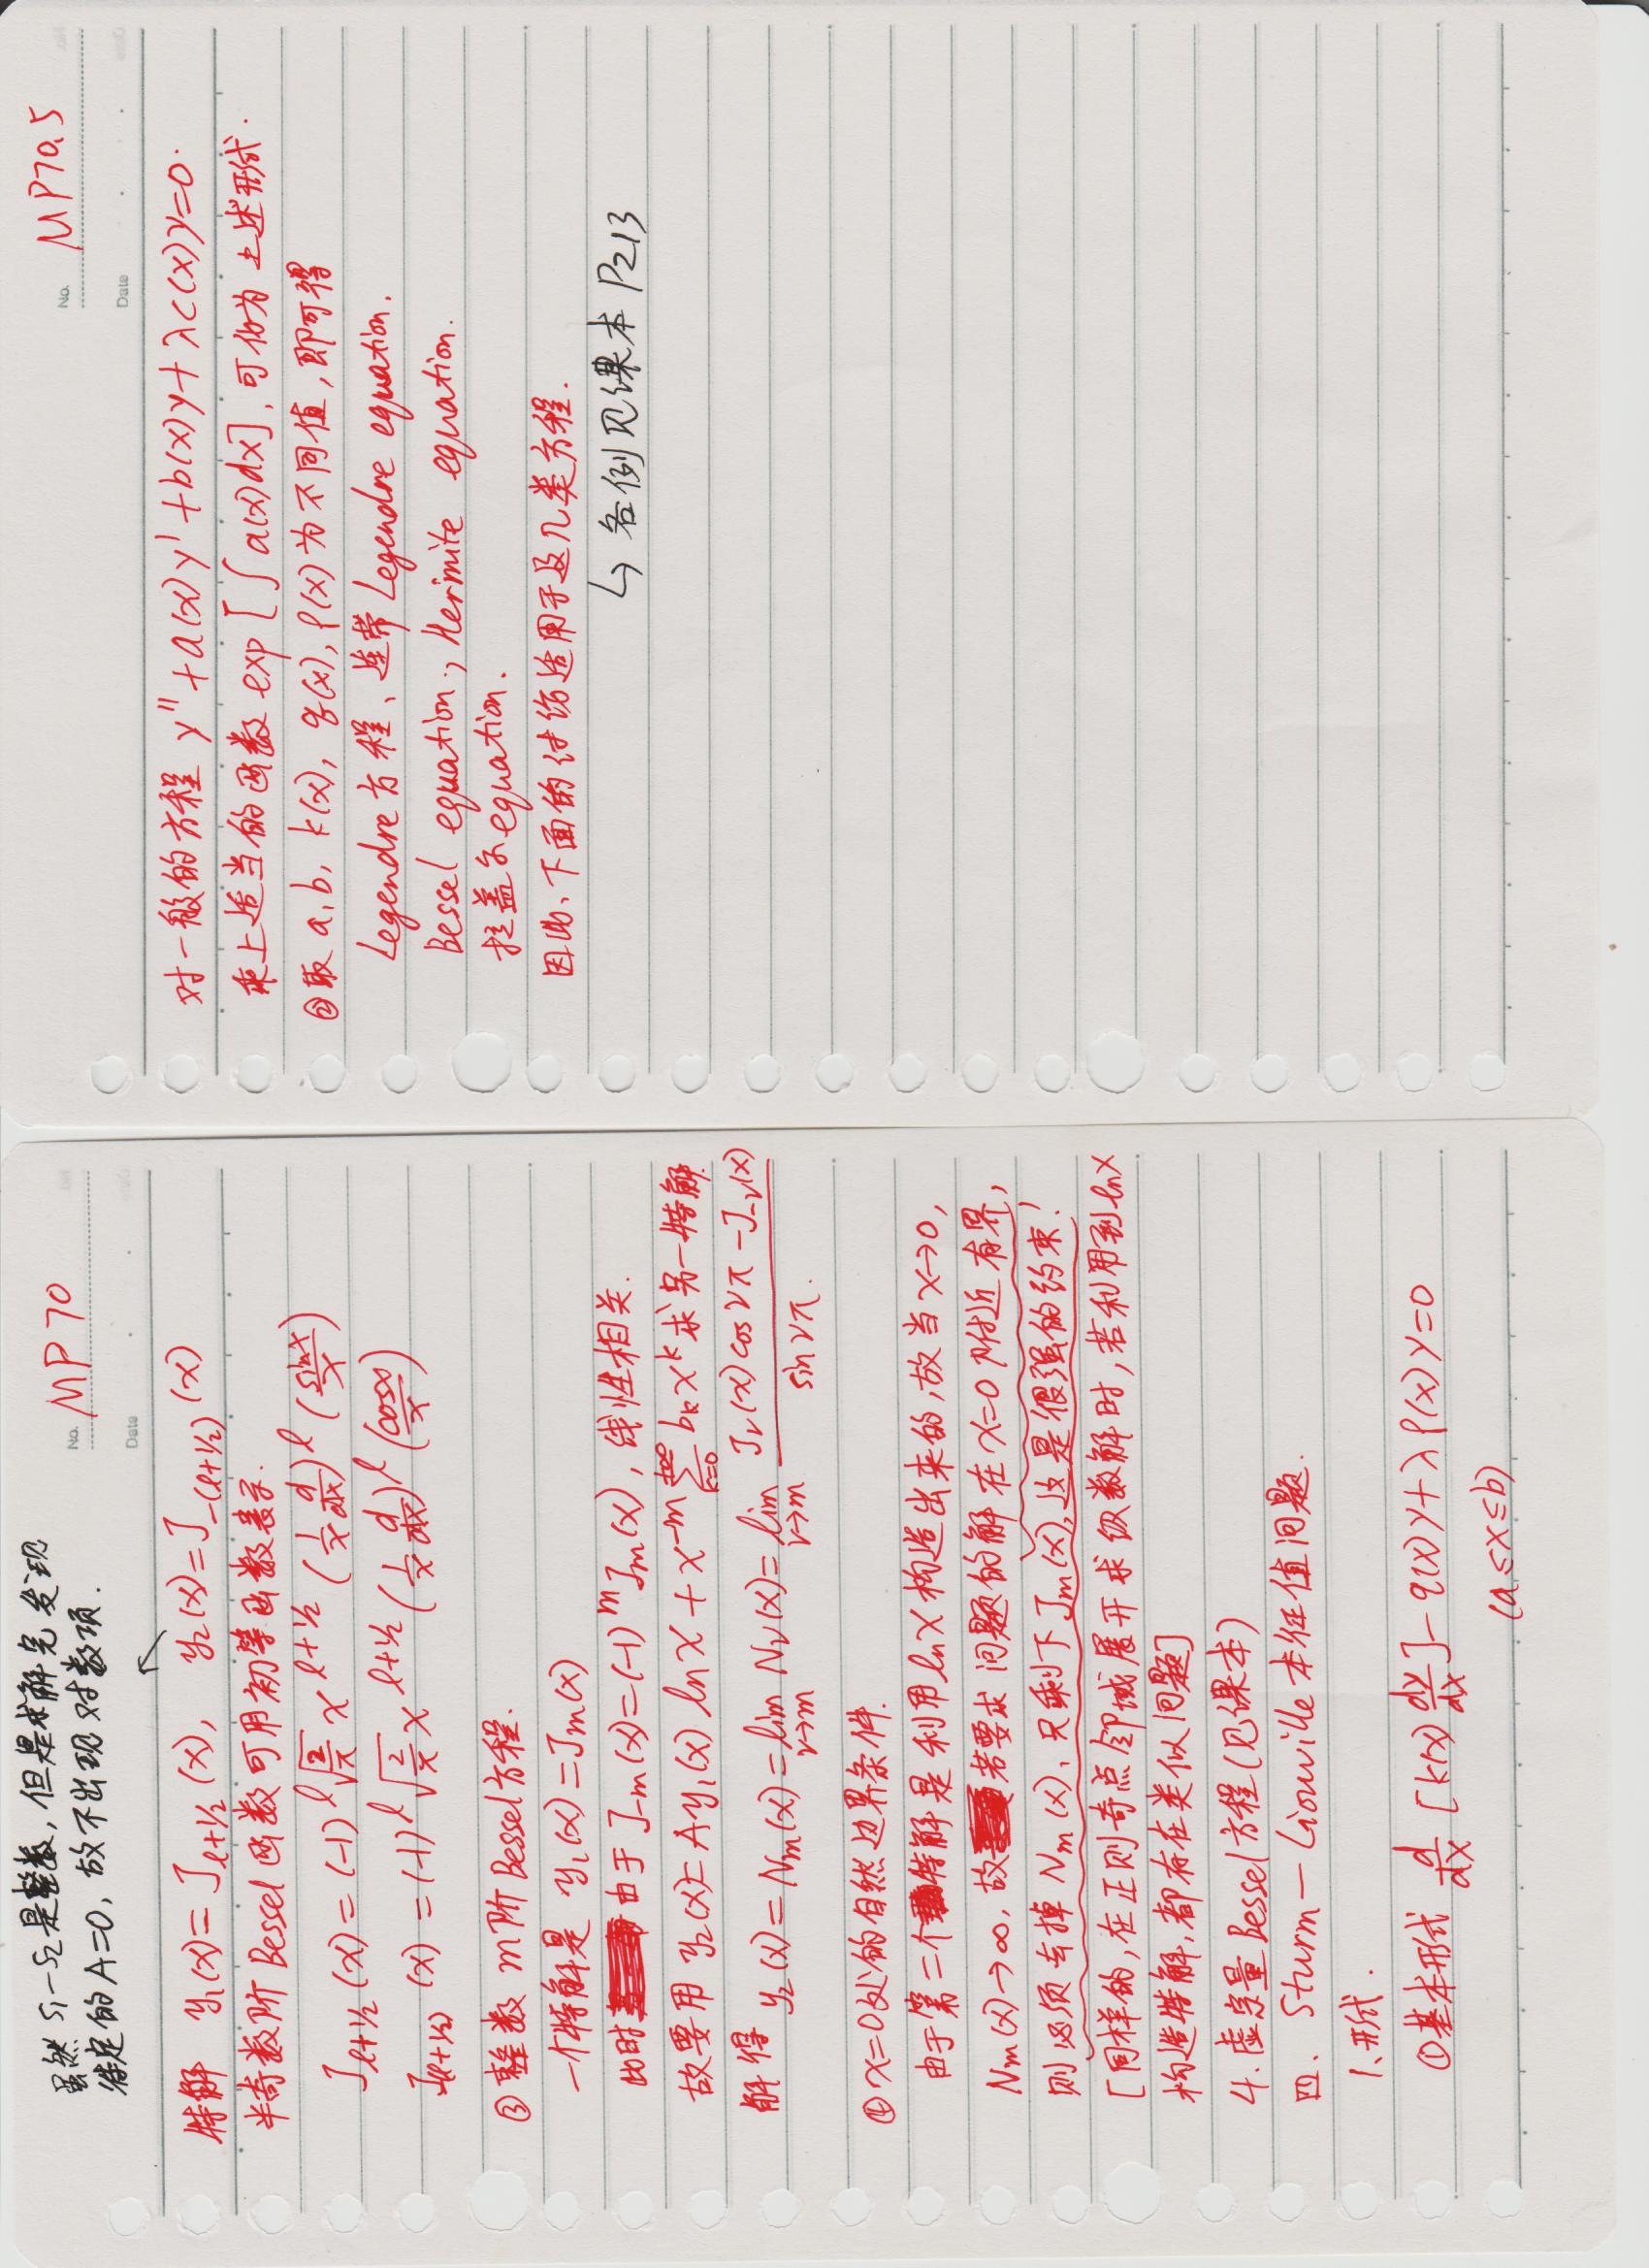 虽然 S₁-S₂是整数, 但是求解完发现
待定的A=0, 故不出现对数项.
No. MP 70
Date
特解 y₁(x)=J_{ℓ+1/2}(x), y₂(x)=J_{-(ℓ+1/2)}(x)
半奇数阶 Bessel 函数可用初等函数表示.
J_{ℓ+1/2}(x)=(-1)^ℓ √(2/π) x^{ℓ+1/2} (1/x d/dx)^ℓ (sinx/x)
J_{-(ℓ+1/2)}(x)=(-1)^ℓ √(2/π) x^{ℓ+1/2} (1/x d/dx)^ℓ (cosx/x)
③ 整数 m 阶 Bessel 方程.
一个特解是 y₁(x)=J_m(x)
此时 由于 J_{-m}(x)=(-1)^m J_m(x), 线性相关.
故要用 y₂(x)=A y₁(x) ln x + x^{-m} ∑_{k=0}^{+∞} b_k x^k 求另一特解.
解得 y₂(x)=N_m(x)=lim_{ν→m} N_ν(x)=lim_{ν→m} (J_ν(x) cos νπ - J_{-ν}(x))/(sin νπ).
④ x=0处的自然边界条件.
由于第二个特解是利用 ln x 构造出来的, 故当 x→0,
N_m(x)→∞, 故若要求问题的解在 x=0 附近有界,
则必须去掉 N_m(x), 只剩下 J_m(x), 这是很强的约束!
[同样的, 在正则奇点邻域展开求级数解时, 若利用到 ln x
构造特解, 都存在类似问题]
4. 虚宗量 Bessel 方程 (见课本)
四. Sturm—Liouville 本征值问题.
1. 形式.
①基本形式 d/dx [k(x) dy/dx] - q(x) y + λ ρ(x) y=0
(a≤x≤b)
No. MP70.5
Date
对一般的方程 y''+a(x)y'+b(x)y+λc(x)y=0.
乘上适当的函数 exp[∫a(x)dx], 可化为上述形式.
②取 a, b, k(x), q(x), ρ(x) 为不同值, 即可得
Legendre 方程、连带 Legendre equation.
Bessel equation., Hermite equation.
拉盖尔 equation.
因此, 下面的讨论适用于这几类方程.
↳ 各例见课本 P213